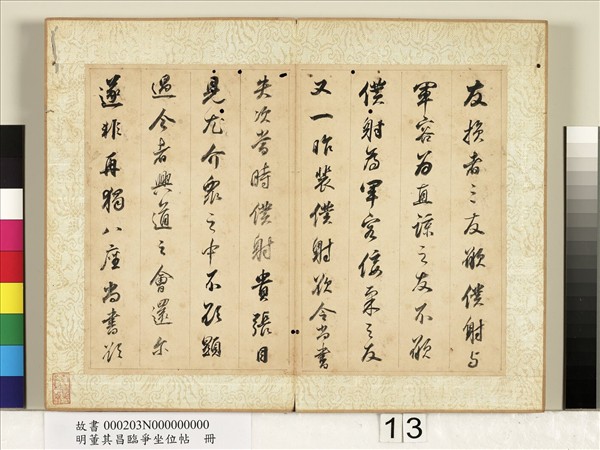 友損者三友願僕射与
軍容為直諒之友不願
僕射為軍容佞柔之友
又一昨裴僕射欲令尚書
失次當時僕射貴張目
見尤介衆之中不欲顯
過今者興道之會還尔
遂非再猲八座尚書欲
故書 000203N000000000
明董其昌臨爭坐位帖 冊
13